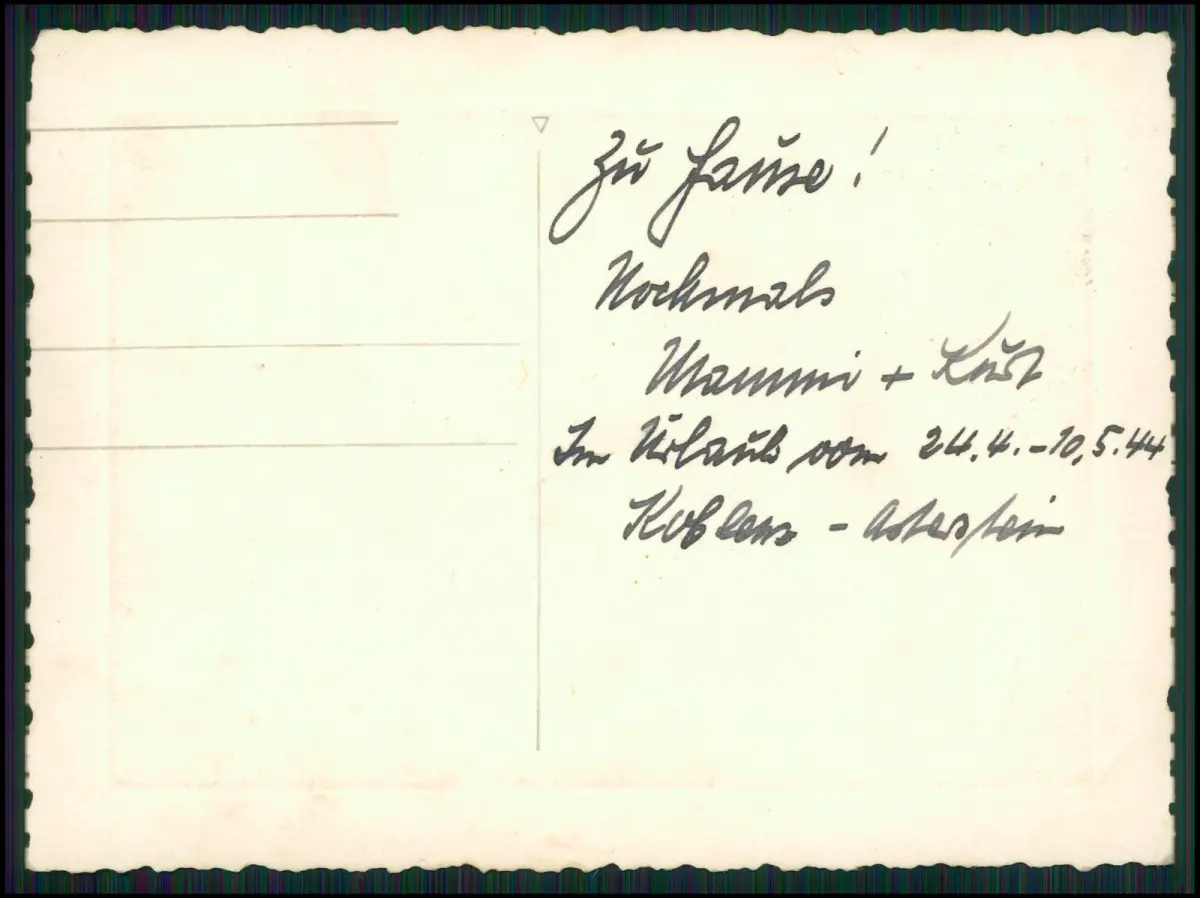 Zu Hause!
Nochmals
Mammi + Kurt
Im Urlaub vom 24.4.-10.5.44
Koblenz - Asterstein